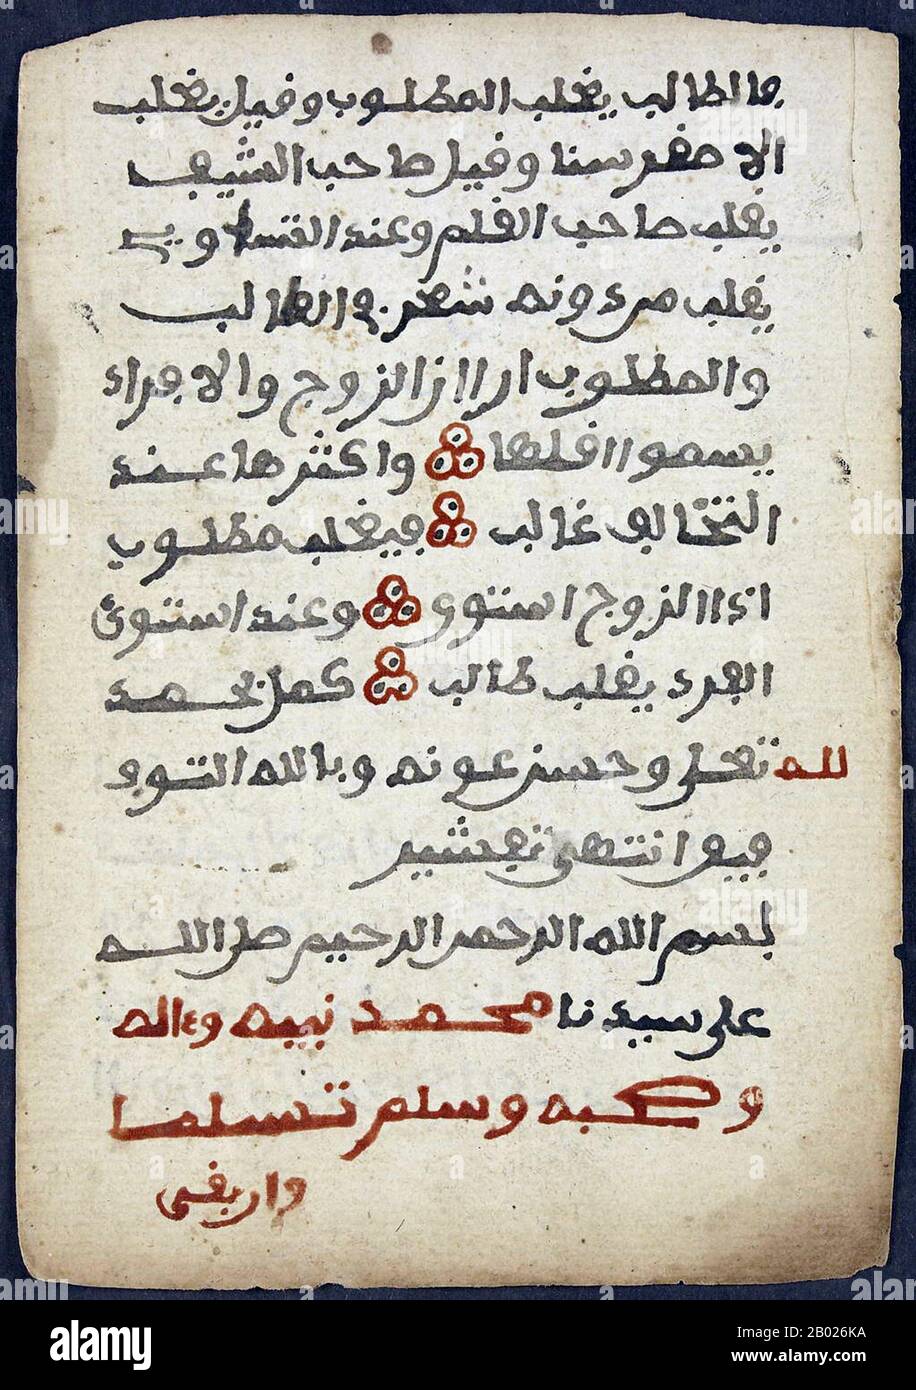 فالطالب يغلب المطلوب وفيل يغلب
الاصغر سنا وفيل صاحب السيف
يغلب صاحب القلم وعند التساوي
يغلب من دونه شعر والطالب
والمطلوب ان اراز الزوج والافراد
يسموا افلها واكثرها عند
التخالف غالب فيغلب مطلوب
اذا الزوج استوى وعند استوى
الفرد يغلب طالب كمل بحمد
لله تعلى وحسن عونه وبالله التوفيق
انتهى
بسم الله الرحمن الرحيم صلى الله
على سيدنا محمد نبيه وءاله
وصحبه وسلم تسليما
alamy
2B026KA
www.alamy.com